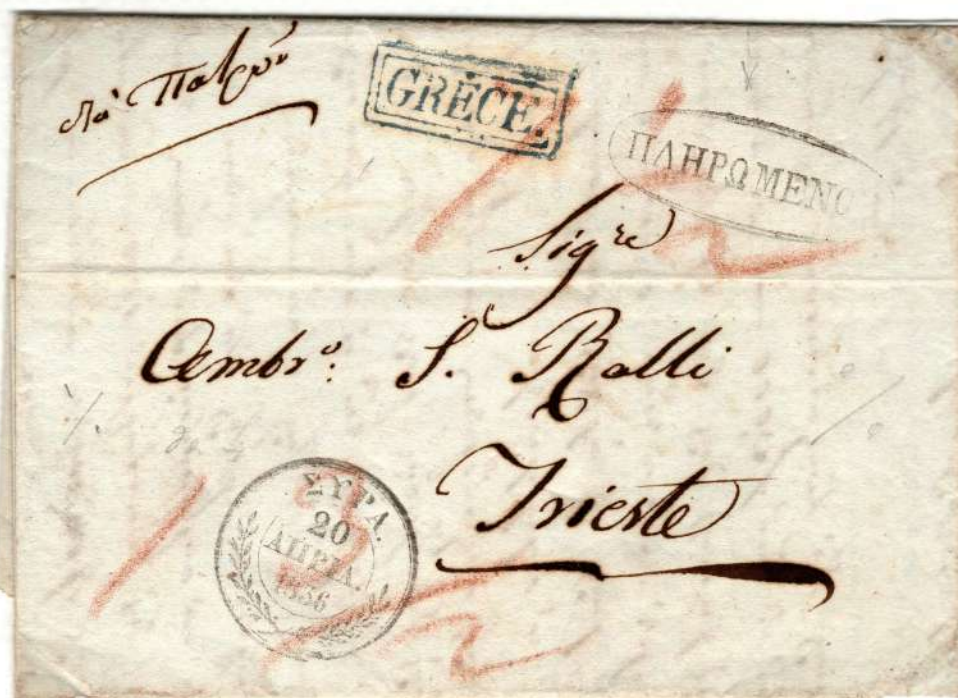 διὰ Πατρῶν
GRÈCE.
ΠΛΗΡΩΜΕΝΟ
Sigre
Ambro: S. Ralli
Trieste
ΣΥΡΑ.
20
ΑΠΡΙΛ.
1836